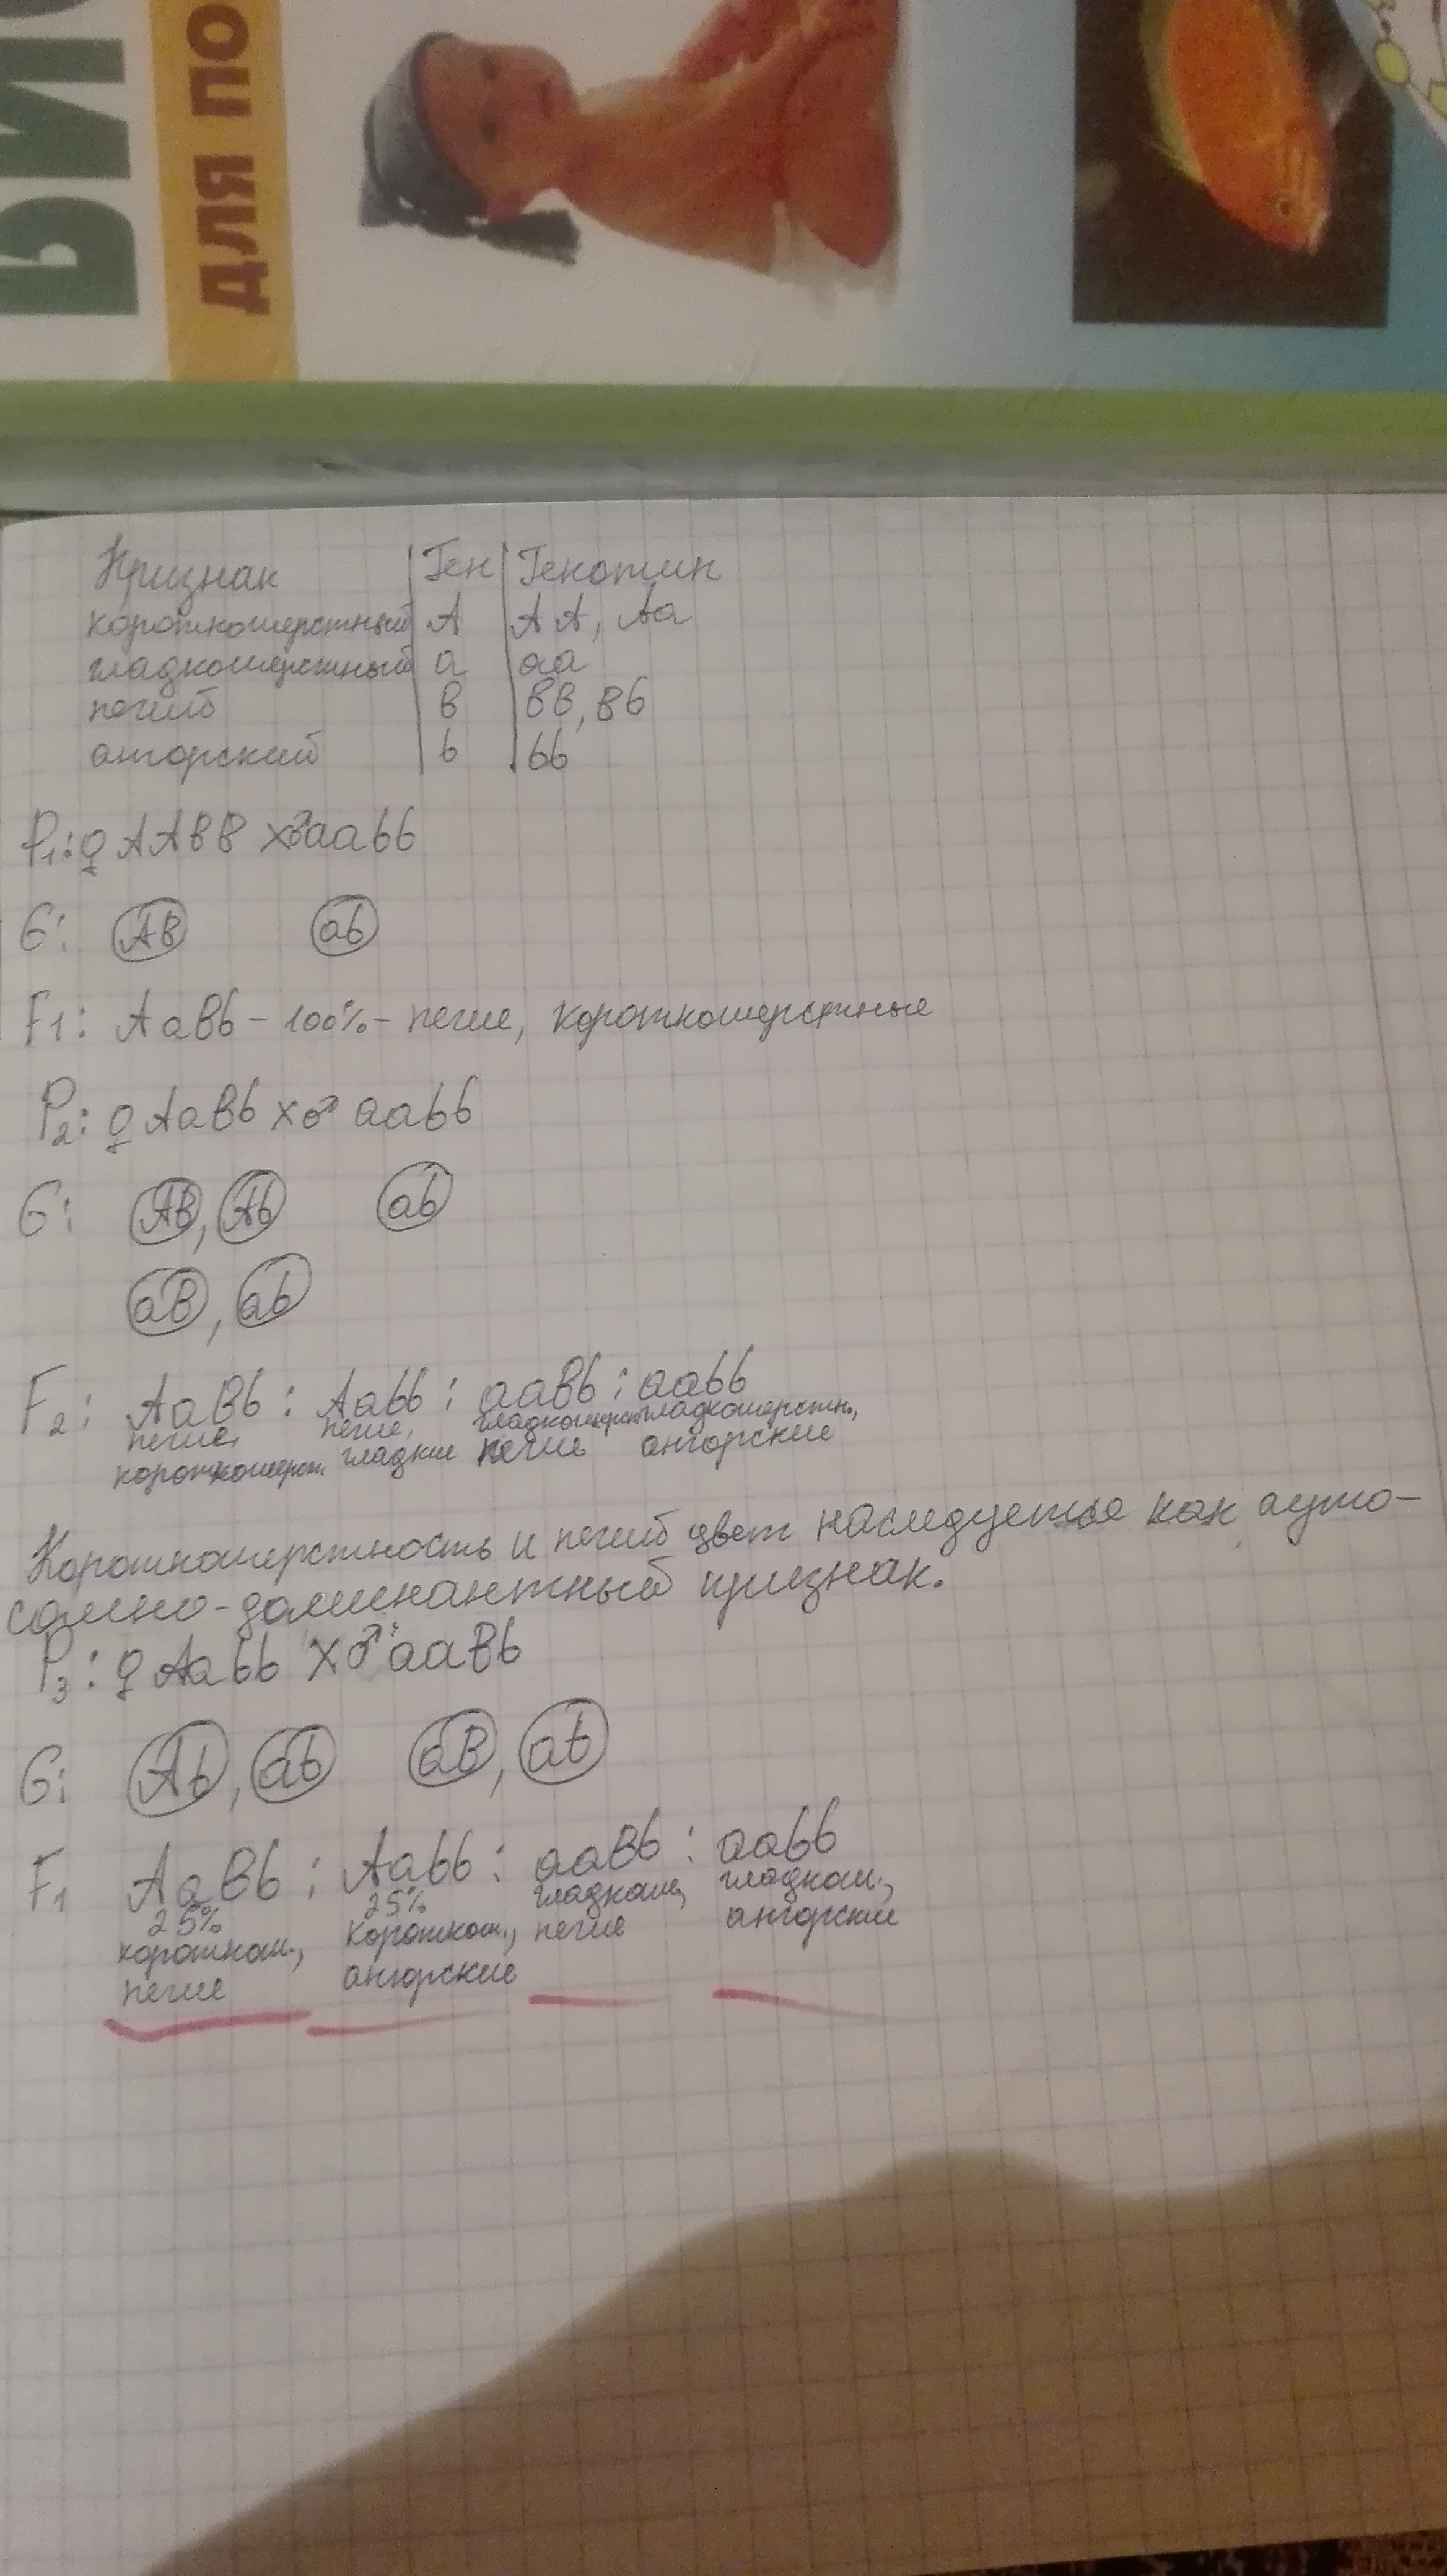 БИО
ДЛЯ ПО
Признак Ген Генотип
короткошерстный А АА, Аа
гладкошерстный а аа
пегий В ВВ, Вb
ангорский b bb
P1: ♀ AABB x ♂ aabb
G: AB ab
F1: AaBb - 100% - пегие, короткошерстные
P2: ♀ AaBb x ♂ aabb
G: AB, Ab ab
aB, ab
F2: AaBb : Aabb : aaBb : aabb
пегие, пегие, гладкошерст гладкошерстн.,
короткошерст. гладкие пегие ангорские
Короткошерстность и пегий цвет наследуется как ауто-
сомно-доминантный признак.
P3: ♀ Aabb x ♂ aaBb
G: Ab, ab aB, ab
F1 AaBb : Aabb : aaBb : aabb
25% 25% гладкош., гладкош.,
короткош., короткош., пегие ангорские
пегие ангорские